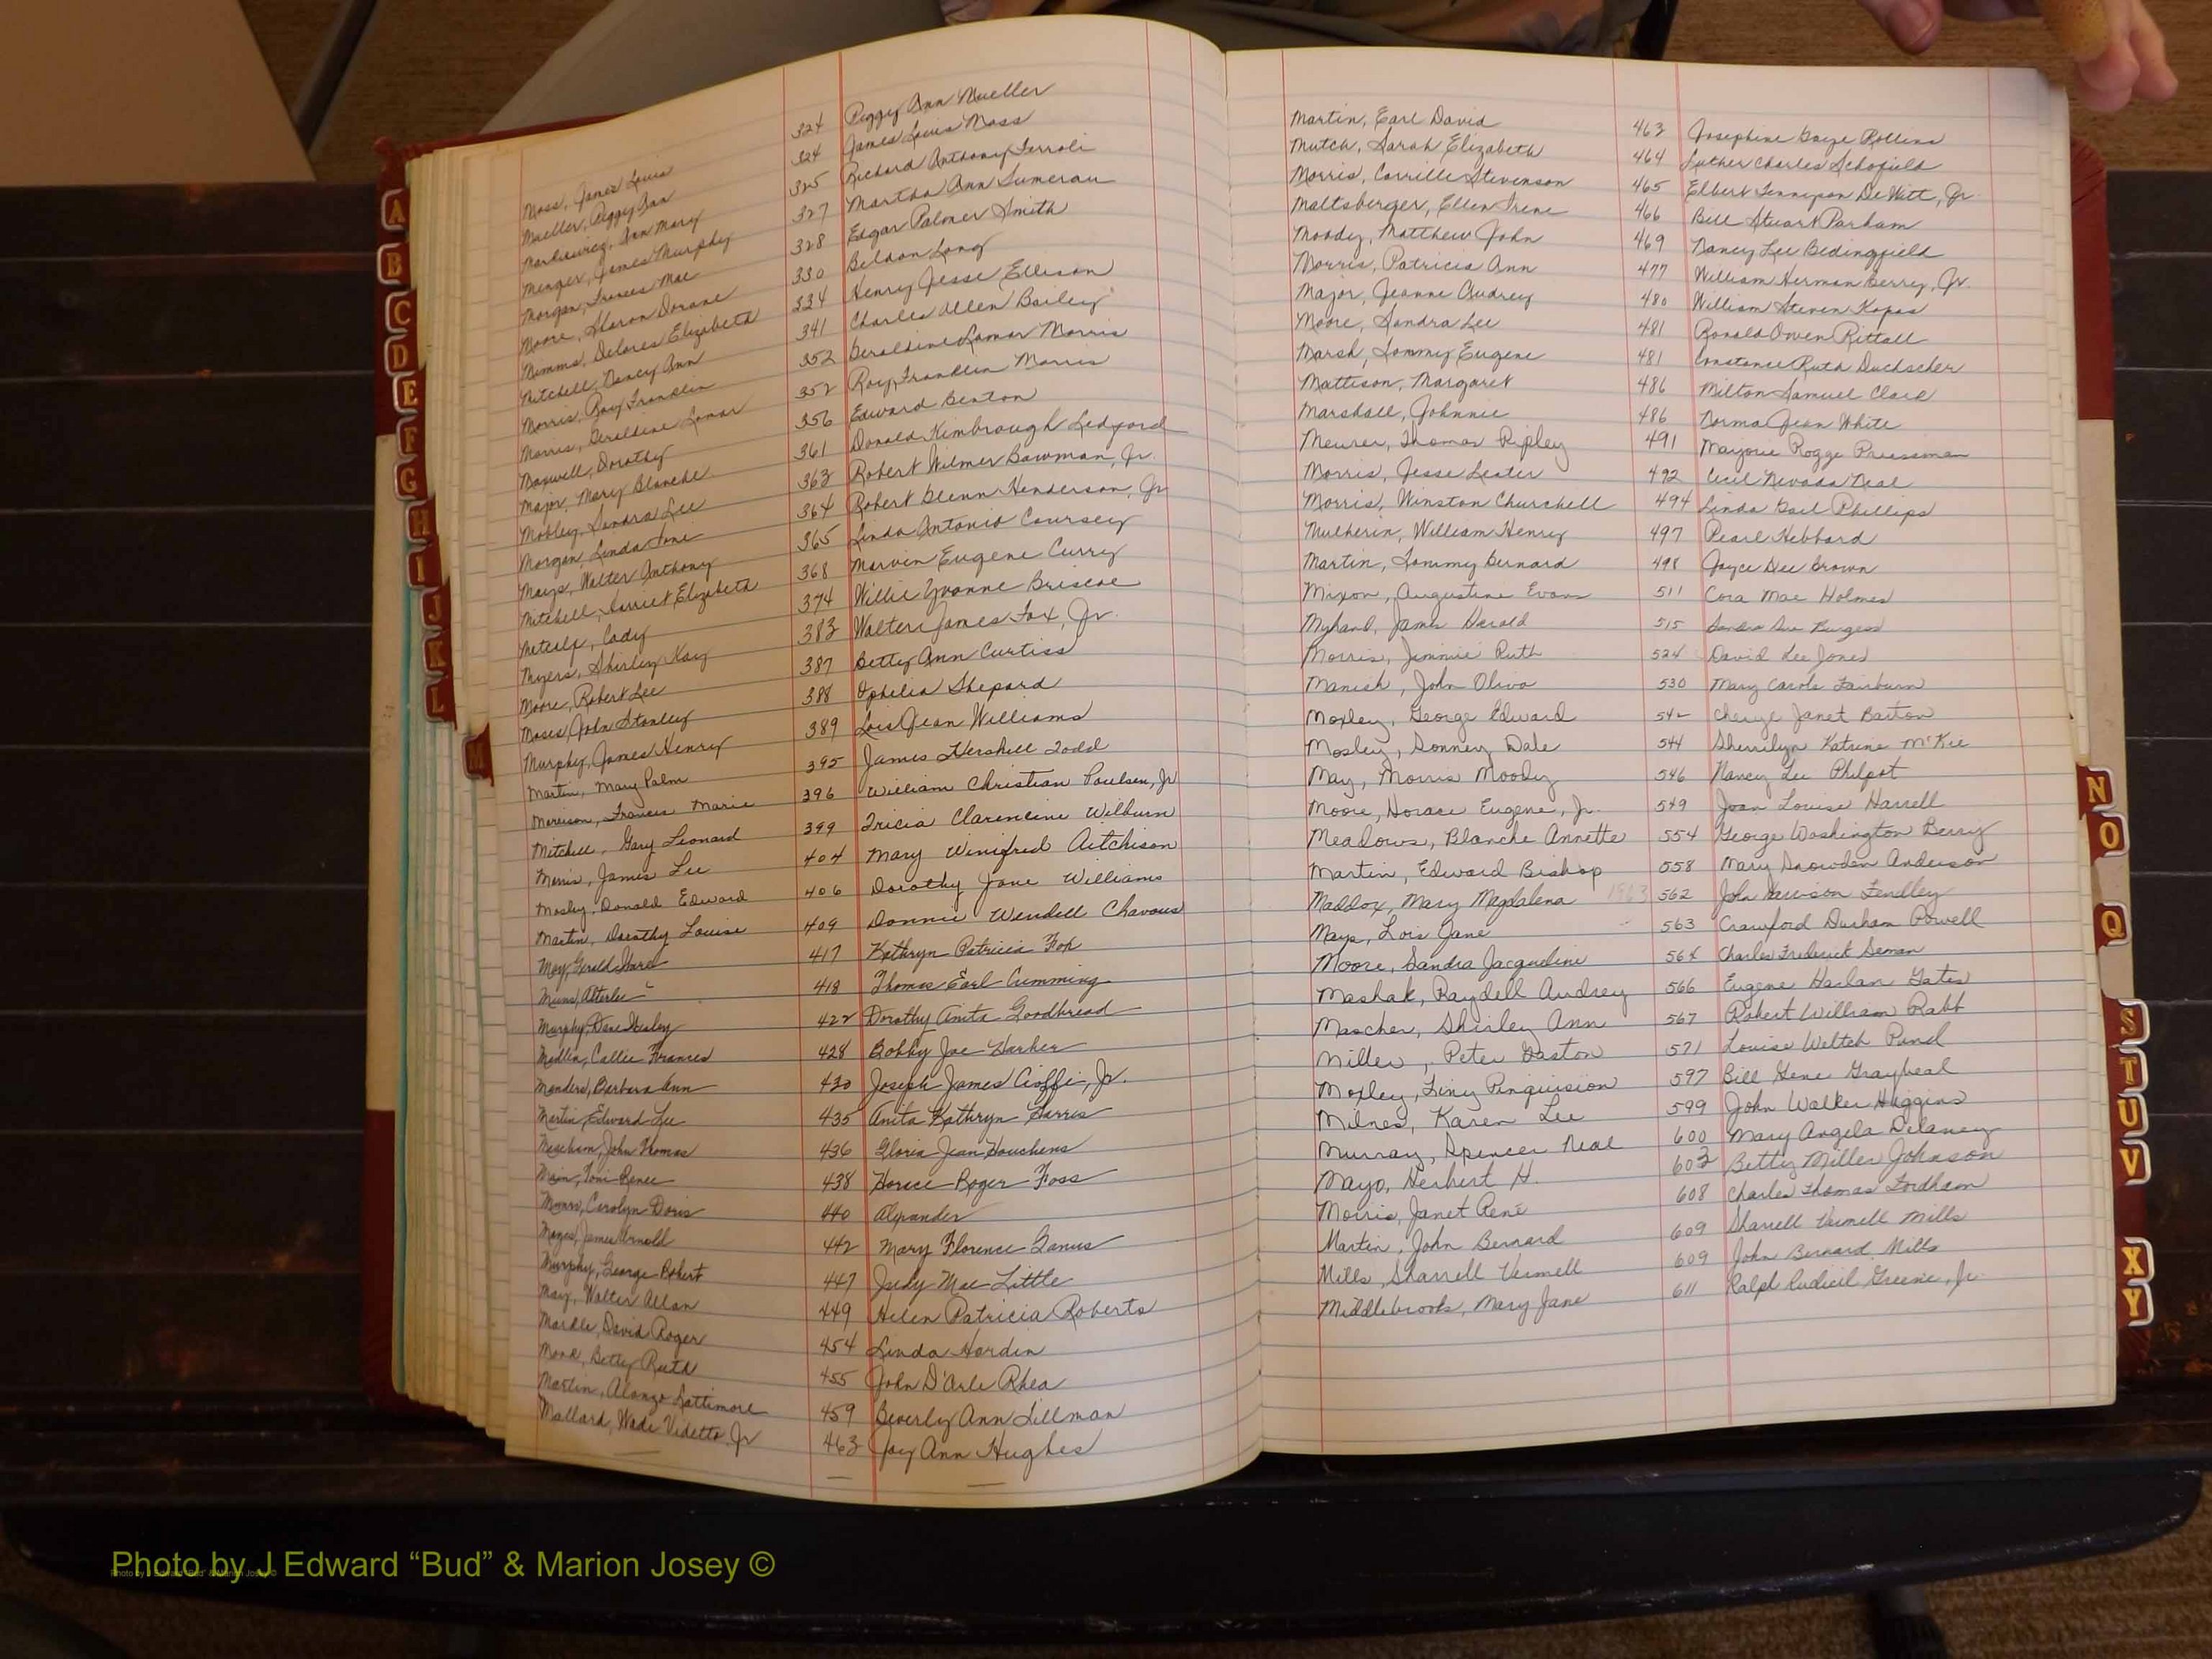 Moss, James Louis 324 Peggy Ann Mueller
Mueller, Peggy Ann 324 James Louis Moss
Markiewicz, Ann Mary 325 Richard Anthony Ferroli
Menger, James Murphy 327 Martha Ann Sumerau
Morgan, Frances Mae 328 Edgar Palmer Smith
Moore, Sharon Dorane 330 Beldon Long
Mimms, Delores Elizabeth 334 Henry Jesse Ellison
Mitchell, Nancy Ann 341 Charles Allen Bailey
Morris, Roy Franklin 352 Geraldine Lamar Morris
Morris, Geraldine Lamar 352 Roy Franklin Morris
Maxwell, Dorothy 356 Edward Benton
Major, Mary Blanche 361 Donald Kimbrough Ledford
Mobley, Sandra Lee 363 Robert Wilmer Bowman, Jr.
Morgan, Linda Toni 364 Robert Glenn Henderson, Jr
Mays, Walter Anthony 365 Linda Antonio Coursey
Mitchell, Harriet Elizabeth 368 Marvin Eugene Curry
Metcalf, Cady 374 Willie Yvonne Briscoe
Myers, Shirley Kay 383 Walter James Fox, Jr.
Moore, Robert Lee 387 Betty Ann Curtiss
Moses, John Stanley 388 Ophelia Shepard
Murphy, James Henry 389 Lois Jean Williams
Martin, Mary Palm 395 James Hershell Todd
Morrison, Frances Marie 396 William Christian Poulsen, Jr
Mitchell, Gary Leonard 399 Tricia Clarencine Wilburn
Morris, James Lee 404 Mary Winifred Aitchison
Mosley, Donald Edward 406 Dorothy Jane Williams
Martin, Dorothy Louise 409 Donnie Wendell Chavous
May, Gerald Ward 417 Kathryn Patricia Fox
Mims, Atterlee 418 Thomas Earl Cumming
Murphy, Dane Wesley 422 Dorothy Anita Goodbread
Modlin, Callie Frances 428 Bobby Joe Harker
Manders, Barbara Ann 430 Joseph James Cioffi, Jr.
Martin, Edward Lee 435 Anita Kathryn Harris
Meacham, John Thomas 436 Gloria Jean Houchens
Main, Toni Renee 438 Horace Roger Foss
Munn, Carolyn Doris 440 Alexander
Mayes, James Arnold 442 Mary Florence Ganus
Murphy, George Robert 447 Judy Mae Little
May, Walter Allan 449 Helen Patricia Roberts
Mardle, David Roger 454 Linda Hardin
Monk, Betty Ruth 455 John D'Arle Rhea
Martin, Alonzo Lattimore 459 Beverly Ann Tillman
Mallard, Wade Vidette, Jr 463 Joy Ann Hughes
Martin, Earl David 463 Josephine Gaye Rollins
Mutch, Sarah Elizabeth 464 Luther Charles Schofield
Morris, Carrille Stevenson 465 Elbert Tennyson DeWitt, Jr.
Maltsberger, Ellen Irene 466 Bill Stuart Parham
Moody, Matthew John 469 Nancy Lee Bedingfield
Morris, Patricia Ann 477 William Herman Berry, Jr.
Major, Jeanne Audrey 480 William Steven Kopas
Moore, Sandra Lee 481 Ronald Owen Rittall
Marsh, Tommy Eugene 481 Constance Ruth Duchscher
Mattison, Margaret 486 Milton Samuel Clark
Marshall, Johnnie 486 Norma Jean White
Meurer, Thomas Ripley 491 Marjorie Rogge Priessman
Morris, Jesse Lester 492 Cecil Nevada Neal
Morris, Winston Churchell 494 Linda Gail Phillips
Mulherin, William Henry 497 Pearl Hebbard
Martin, Tommy Bernard 498 Joyce Dee Brown
Mixon, Augustine Evans 511 Cora Mae Holmes
Myhand, James Harold 515 Sandra Sue Burgess
Morris, Jimmie Ruth 524 David Lee Jones
Manish, John Oliva 530 Mary Carole Fairburn
Moxley, George Edward 542 Cheryl Janet Barton
Mosley, Sonney Dale 544 Sherrilyn Katrine McKie
May, Morris Moody 546 Nancy Lee Philpot
Moore, Horace Eugene, Jr. 549 Joan Louise Harrell
Meadows, Blanche Annette 554 George Washington Berry
Martin, Edward Bishop 558 Mary Snowden Anderson
Maddox, Mary Magdalena 1963 562 John Harrison Fendley
Mays, Lois Jane 563 Crawford Durham Powell
Moore, Sandra Jacqueline 564 Charles Frederick Seman
Mashak, Raydell Audrey 566 Eugene Harlan Gates
Mascher, Shirley Ann 567 Robert William Rabb
Miller, Peter Gaston 571 Louise Weltch Pund
Moxley, Tiny Pinquision 597 Bill Gene Graybeal
Milnes, Karen Lee 599 John Walker Huggins
Murray, Spencer Neal 600 Mary Angela Delaney
Mayo, Herbert H. 603 Betty Miller Johnson
Morris, Janet René 608 Charles Thomas Fordham
Martin, John Bernard 609 Sharrell Vermell Mills
Mills, Sharrell Vermell 609 John Bernard Mills
Middlebrooks, Mary Jane 611 Ralph Rudicil Greene, Jr.
A
B
C
D
E
F
G
H
I
J
K
L
M
N
O
Q
S
T
U
V
X
Y
Photo by J Edward “Bud” & Marion Josey ©
Photo by J Edward "Bud" & Marion Josey ©